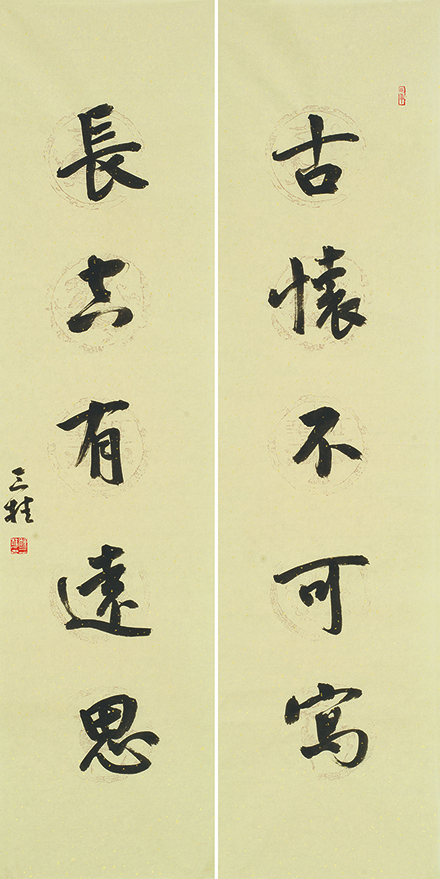 古懷不可寫
長有遠思
三桂